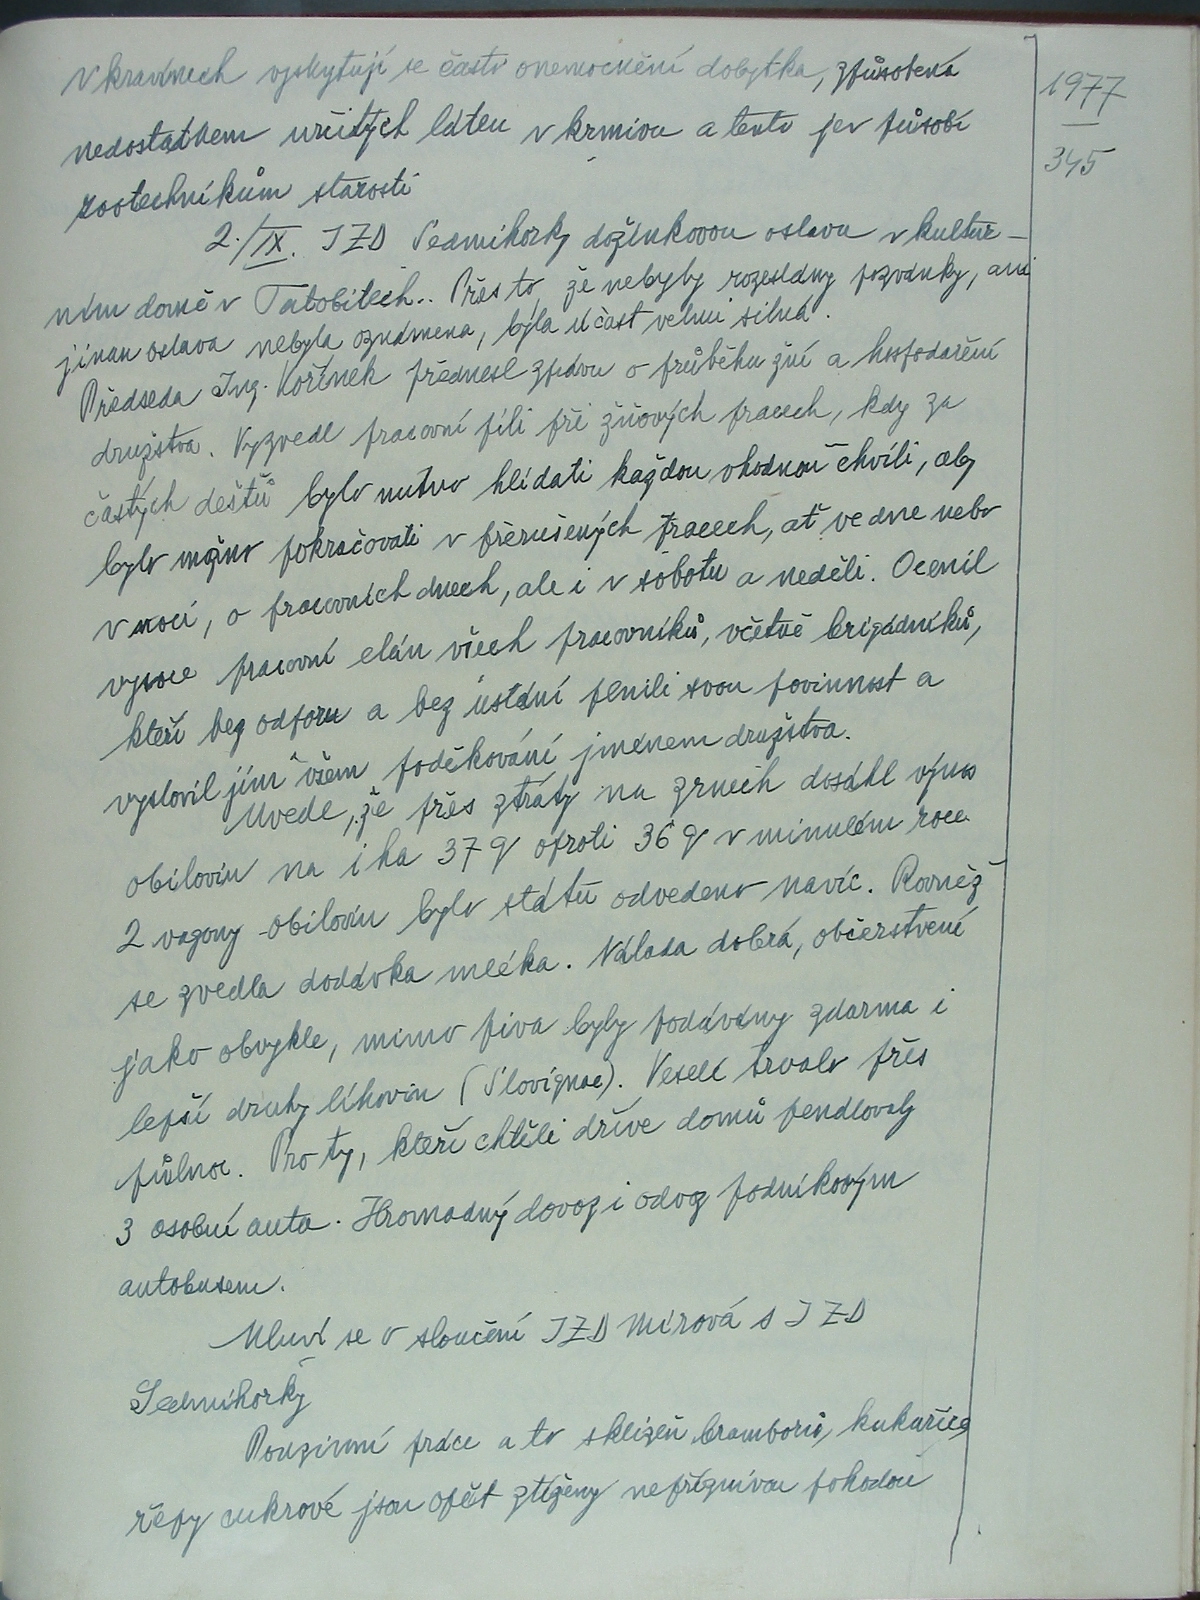 1977
345
V kravínech vyskytují se často onemocnění dobytka, způsobená
nedostatkem určitých látek v krmivu a tento jev působí
zootechnikům starosti
2./IX. JZD Sedmihorky dožínkovou oslavu v kultur-
ním domě v Tatobitech.. Přes to, že nebyly rozeslány pozvánky, ani
jinak oslava nebyla oznámena, byla účast velmi silná.
Předseda Ing. Kořínek přednesl zprávu o průběhu žní a hospodaření
družstva. Vyzvedl pracovní píli při žňových pracech, kdy za
častých dešťů bylo nutno hlídati každou vhodnou chvíli, aby
bylo možno pokračovati v přerušených pracech, ať ve dne nebo
v noci, o pracovních dnech, ale i v sobotu a neděli. Ocenil
vysoce pracovní elán všech pracovníků, včetně brigádníků,
kteří bez odporu a bez ustání plnili svou povinnost a
vyslovil jim všem poděkování jménem družstva.
Uvedl, že přes ztráty na zrnech dosáhl výnos
obilovin na 1 ha 37 q oproti 36 q v minulém roce
2 vagony obilovin bylo státu odvedeno navíc. Rovněž
se zvedla dodávka mléka. Nálada dobrá, občerstvení
jako obvykle, mimo piva byly podávány zdarma i
lepší druhy lihovin (Slovignac). Veselí trvalo přes
půlnoc. Pro ty, kteří chtěli dříve domů pendlovaly
3 osobní auta. Hromadný dovoz i odvoz podnikovým
autobusem.
Mluví se o sloučení JZD Mírová s JZD
Sedmihorky
Podzimní práce a to sklizeň brambor, kukuřice,
řepy cukrové jsou opět ztíženy nepříznivou pohodou